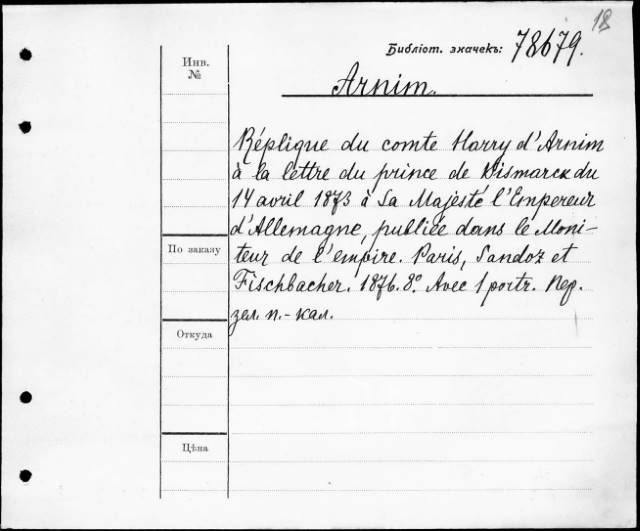 18
Библіот. значекъ: 78679.
Инв.
№
Arnim.
Réplique du comte Harry d'Arnim
à la lettre du prince de Bismarck du
14 avril 1873 à Sa Majesté l'Empereur
d'Allemagne, publiée dans le Moni-
teur de l'empire. Paris, Sandoz et
Fischbacher. 1876. 8º. Avec 1 portr. Пер.
зел. п.-кал.
По заказу
Откуда
Цѣна